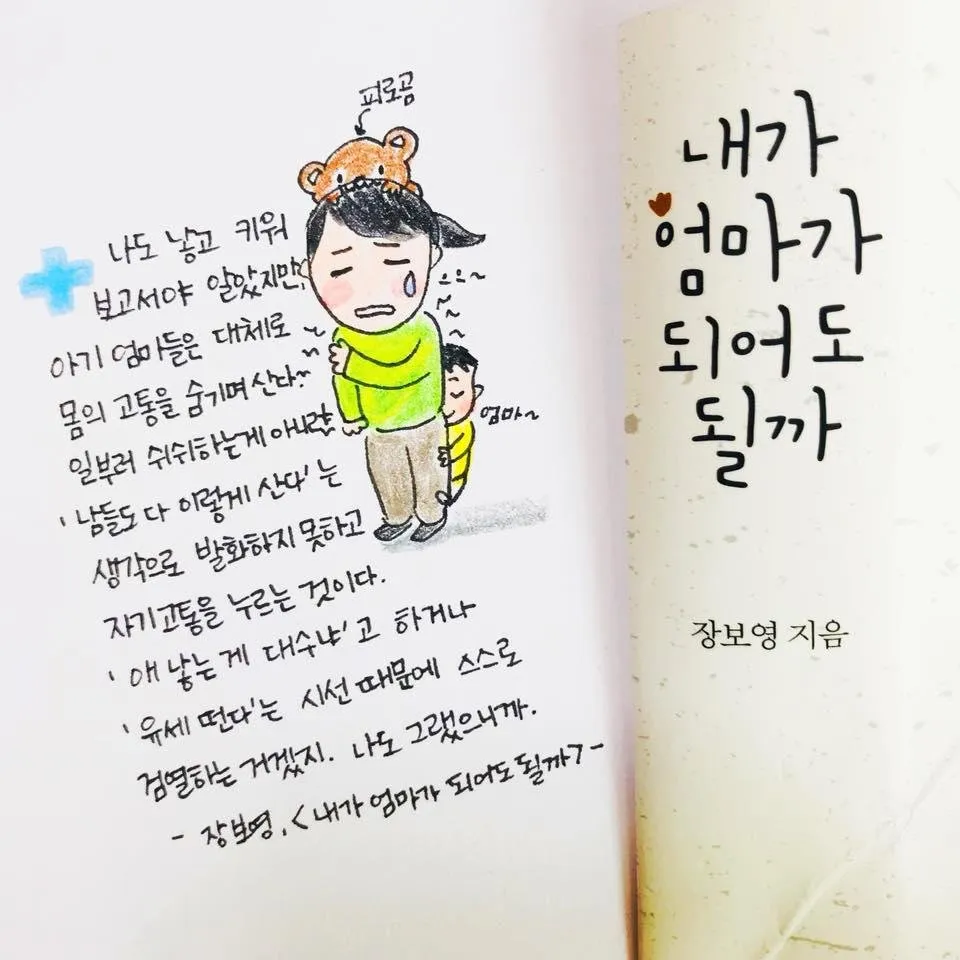 피로곰
나도 낳고 키워
보고서야 알았지만,
아기 엄마들은 대체로
몸의 고통을 숨기며 산다.
일부러 쉬쉬하는게 아니라,
'남들도 다 이렇게 산다'는
생각으로 발화하지 못하고
자기고통을 누르는 것이다.
'애 낳는 게 대수냐'고 하거나
'유세 떤다'는 시선 때문에 스스로
검열하는 거겠지. 나도 그랬으니까.
- 장보영. <내가 엄마가 되어도 될까> -
으으~
엄마~
내가
엄마가
되어도
될까
장보영 지음